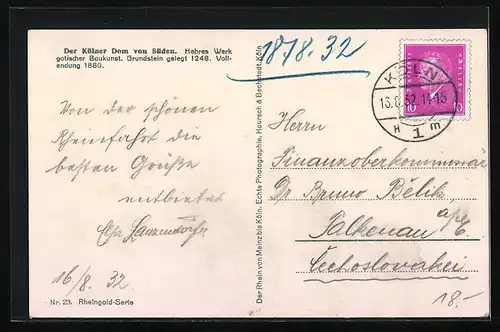 Der Kölner Dom von Süden. Hehres Werk
gotischer Baukunst. Grundstein gelegt 1248. Voll-
endung 1880.
18/8. 32
KÖLN
16.8.32. 14-15
H 1 m
10 10
Von der schönen
Rheinfahrt die
besten Grüße
entbietet
16/8. 32
Nr. 23. Rheingold-Serie
Der Rhein von Mainz bis Köln. Echte Photographie. Hoursch & Bechstedt, Köln
Herrn
Finanzoberkommissär
Dr Bruno Bělik,
Falkenau a/E.
Čechoslovakei
18.-